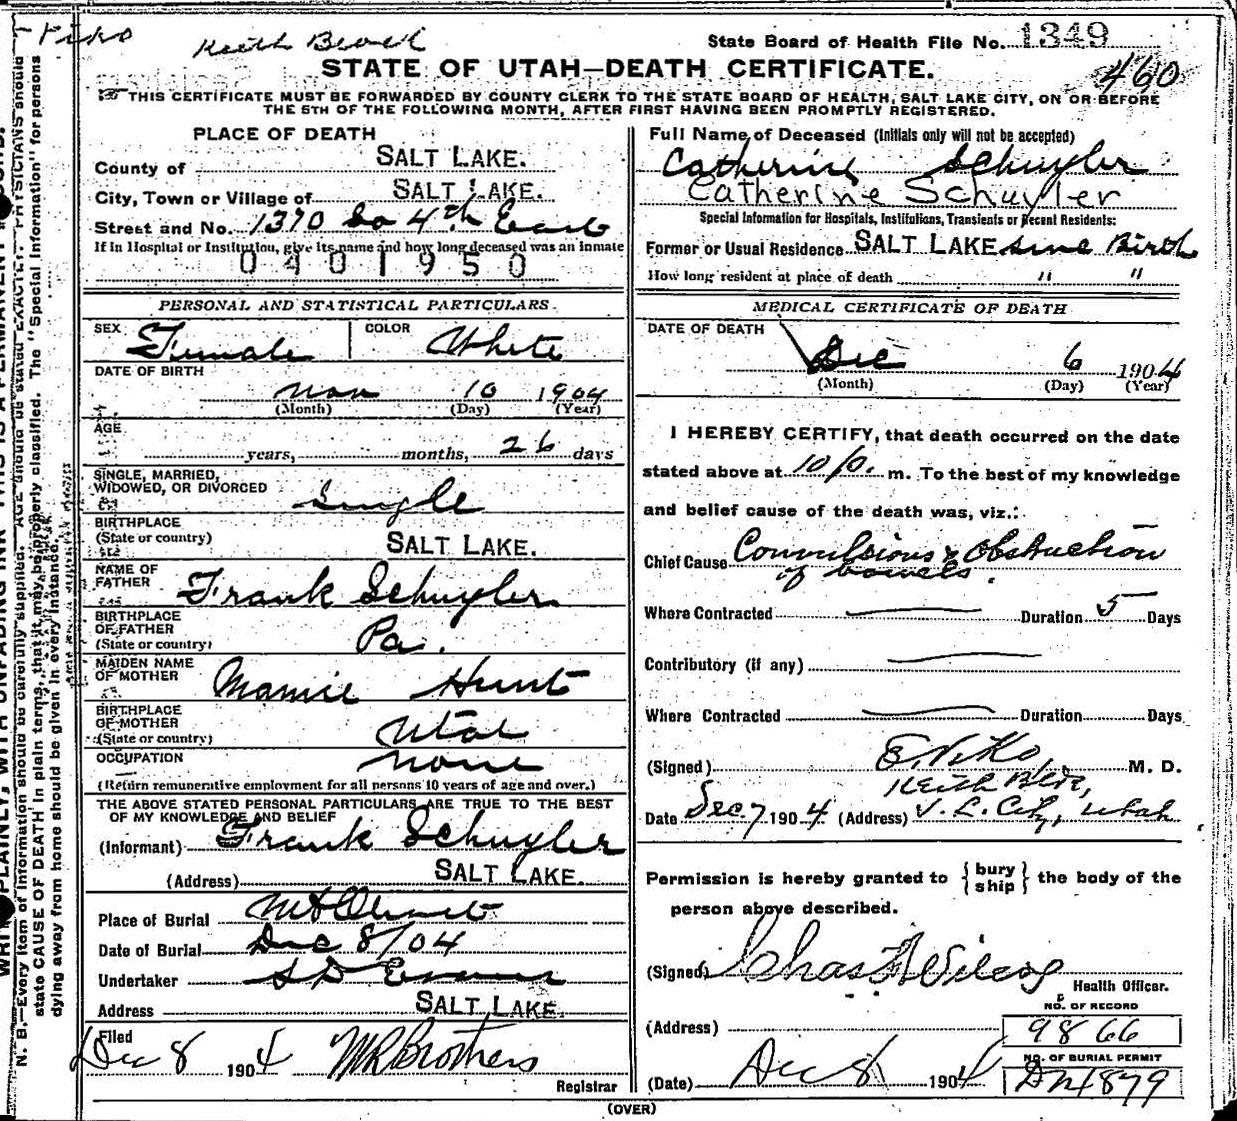 Piko Keith Block
State Board of Health File No. 1349
STATE OF UTAH—DEATH CERTIFICATE. 460
THIS CERTIFICATE MUST BE FORWARDED BY COUNTY CLERK TO THE STATE BOARD OF HEALTH, SALT LAKE CITY, ON OR BEFORE
THE 5TH OF THE FOLLOWING MONTH, AFTER FIRST HAVING BEEN PROMPTLY REGISTERED.
PLACE OF DEATH
County of SALT LAKE.
City, Town or Village of SALT LAKE.
Street and No. 1370 So 4th East
If in Hospital or Institution, give its name and how long deceased was an inmate
0401950
PERSONAL AND STATISTICAL PARTICULARS.
SEX Female COLOR White
DATE OF BIRTH
Nov 10 1904
(Month) (Day) (Year)
AGE
years, months, 26 days
SINGLE, MARRIED,
WIDOWED, OR DIVORCED Single
BIRTHPLACE
(State or country) SALT LAKE.
NAME OF
FATHER Frank Schuyler
BIRTHPLACE
OF FATHER
(State or country) Pa.
MAIDEN NAME
OF MOTHER Mamie Hunt
BIRTHPLACE
OF MOTHER
(State or country) Utah
OCCUPATION None
(Return remunerative employment for all persons 10 years of age and over.)
THE ABOVE STATED PERSONAL PARTICULARS ARE TRUE TO THE BEST
OF MY KNOWLEDGE AND BELIEF
(Informant) Frank Schuyler
(Address) SALT LAKE.
Place of Burial Mt Olivet
Date of Burial Dec 8/04
Undertaker S D Evans
Address SALT LAKE.
Filed
Dec 8 1904 M R Brothers
Registrar
Full Name of Deceased (Initials only will not be accepted)
Catherine Schuyler
Catherine Schuyler
Special Information for Hospitals, Institutions, Transients or Recent Residents:
Former or Usual Residence SALT LAKE sine Birth
How long resident at place of death " "
MEDICAL CERTIFICATE OF DEATH
DATE OF DEATH
Dec 6 1904
(Month) (Day) (Year)
I HEREBY CERTIFY, that death occurred on the date
stated above at 10 P. m. To the best of my knowledge
and belief cause of the death was, viz.:
Chief Cause Convulsions & Obstruction
of bowels.
Where Contracted Duration 5 Days
Contributory (if any)
Where Contracted Duration Days
(Signed) M. D.
Keith Bldg,
Date Dec 7 1904 (Address) S. L. City, Utah
Permission is hereby granted to { bury
ship } the body of the
person above described.
(Signed) Chas Wilcox
Health Officer.
NO. OF RECORD
(Address) 9866
NO. OF BURIAL PERMIT
(Date) Dec 8 1904 4879
(OVER)
N. B.—Every item of information should be carefully supplied. AGE should be stated EXACTLY. PHYSICIANS should
state CAUSE OF DEATH in plain terms, that it may be properly classified. The "Special Information" for persons
dying away from home should be given in every instance.